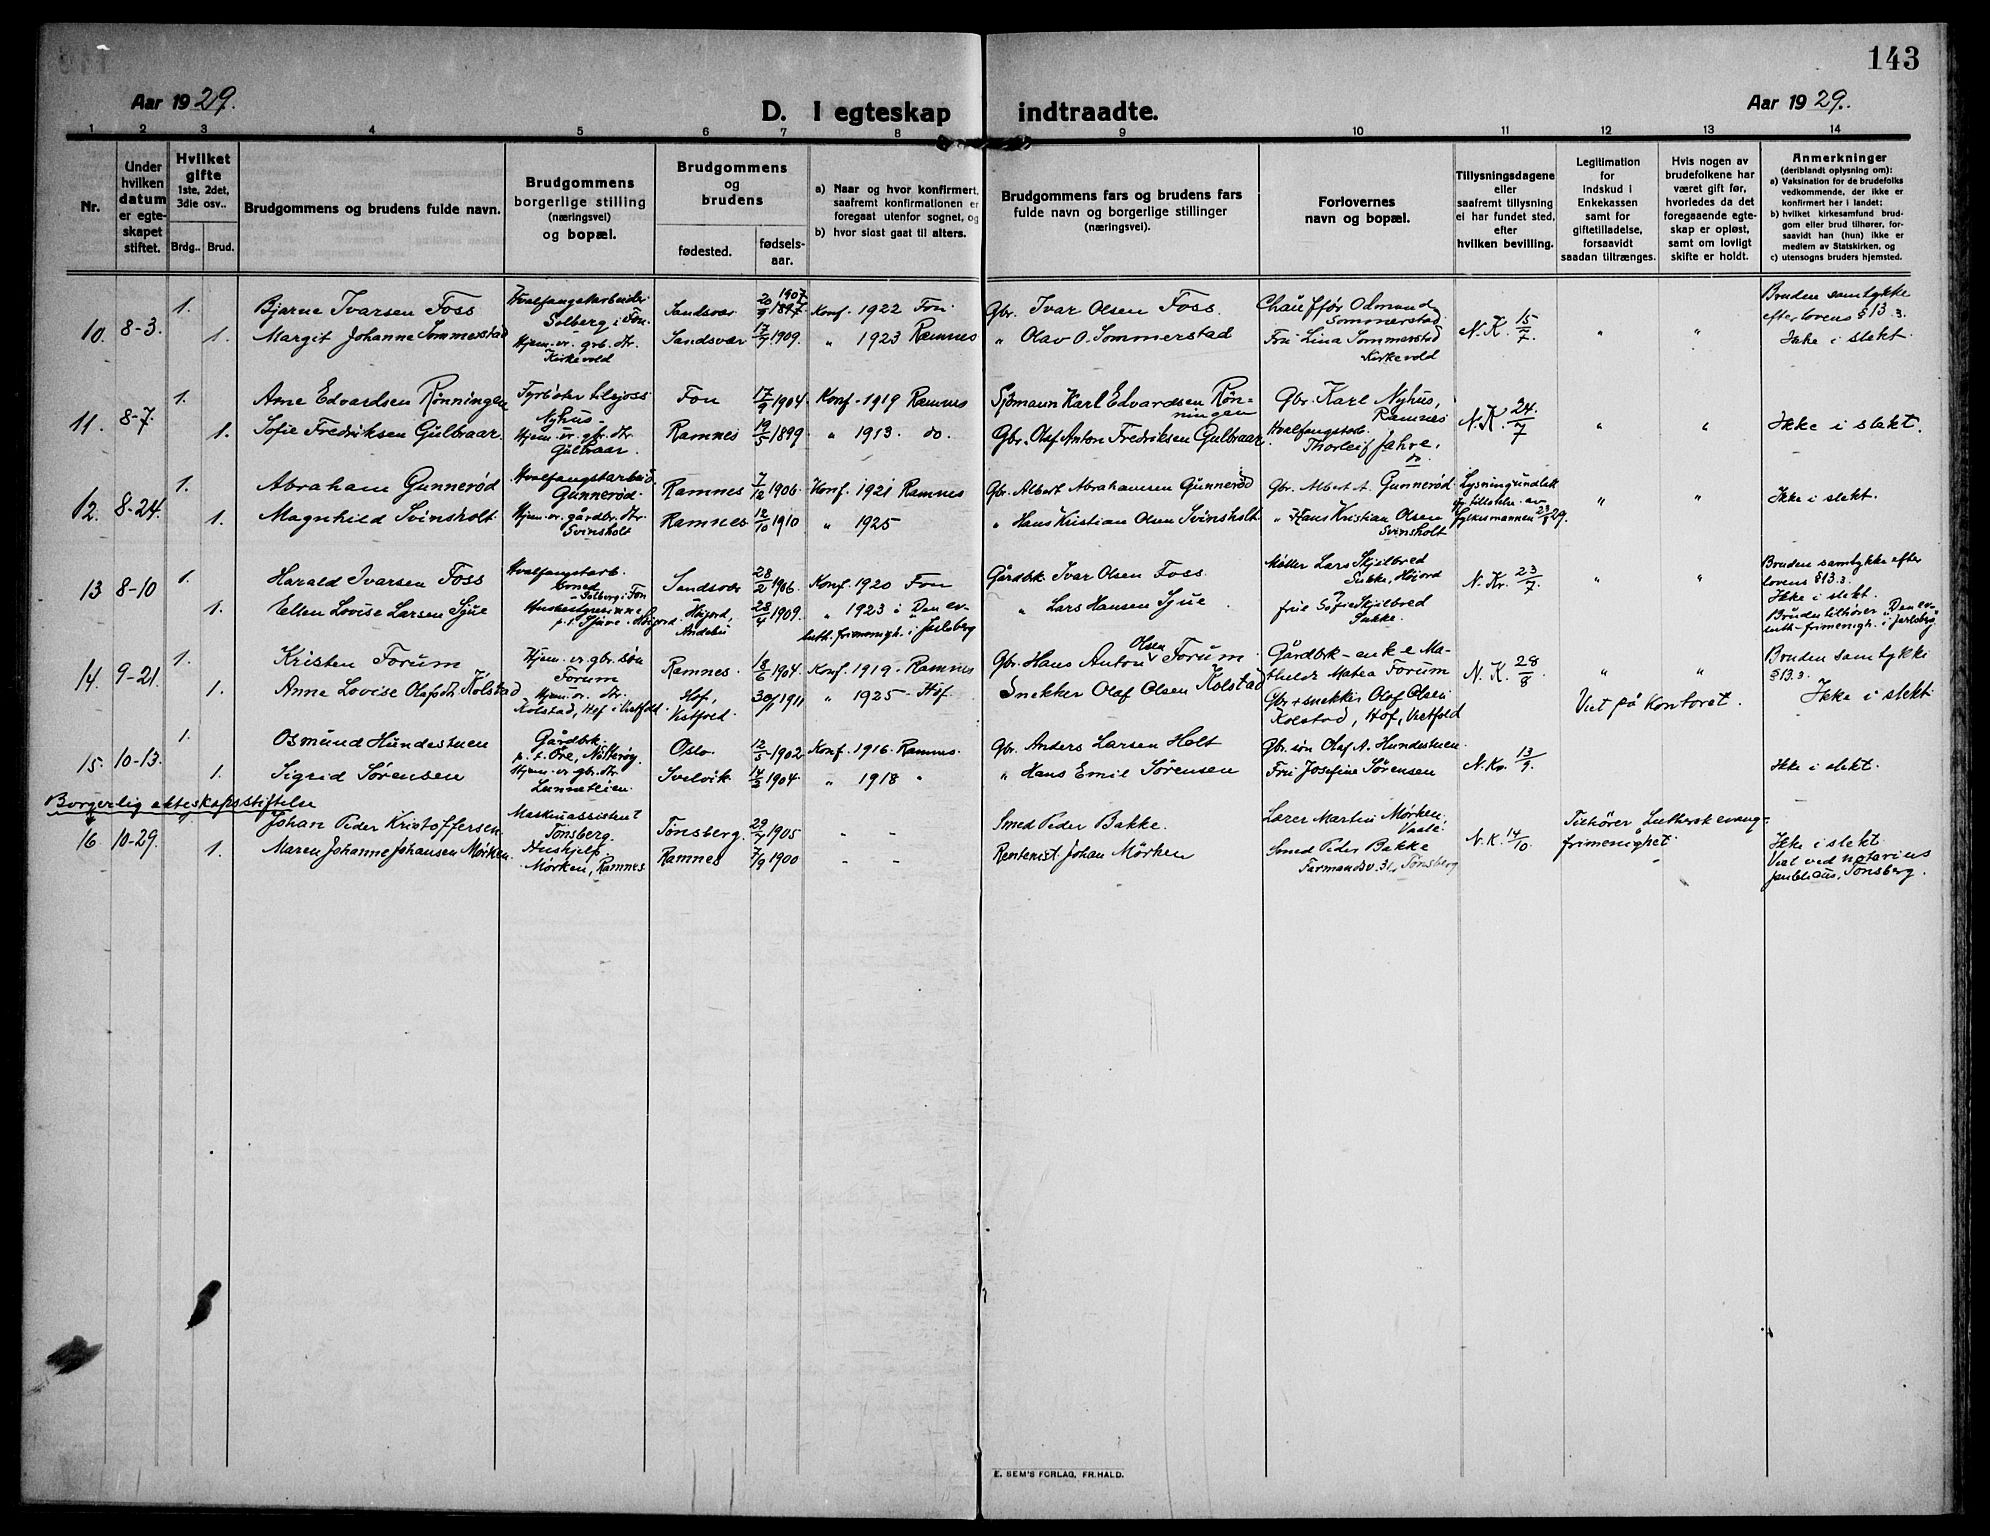 143
Aar 1929.
D. I egteskap indtraadte.
Aar 1929.
1 2 3 4 5 6 7 8 9 10 11 12 13 14
Nr.
Under hvilken datum er egteskapet stiftet.
Hvilket gifte 1ste, 2det, 3die osv..
Brdg.. Brud.
Brudgommens og brudens fulde navn.
Brudgommens borgerlige stilling (næringsvei) og bopæl.
Brudgommens og brudens
fødested. fødsels-aar.
a) Naar og hvor konfirmert, saafremt konfirmationen er foregaat utenfor sognet, og
b) hvor sidst gaat til alters.
Brudgommens fars og brudens fars fulde navn og borgerlige stillinger (næringsvei).
Forlovernes navn og bopæl.
Tillysningsdagene eller saafremt tillysning ei har fundet sted, efter hvilken bevilling.
Legitimation for indskud i Enkekassen samt for giftetilladelse, forsaavidt saadan tiltrænges.
Hvis nogen av brudefolkene har været gift før, hvorledes da det foregaaende egteskap er opløst, samt om lovligt skifte er holdt.
Anmerkninger (deriblandt oplysning om):
a) Vaksination for de brudefolks vedkommende, der ikke er konfirmert her i landet;
b) hvilket kirkesamfund brudgom eller brud tilhører, forsaavidt han (hun) ikke er medlem av Statskirken, og
c) utensogns bruders hjemsted.
10. 8-3. 1. Bjarne Ivarsen Foss Hvalfangstarbeider Solberg i Fon. Sandsvær 20/9 1897 1907 Konf. 1922 Fon Gbr. Ivar Olsen Foss. Chauffør Odmund Sommerstad N.K. 15/7 " " Bruden samtykke efter lovens § 13.3.
1. Margit Johanne Sommerstad Hjem. v. gbr. dtr. Kirkevold Sandsvær 17/7 1909. " 1923 Ramnes " Olav O. Sommerstad Fru Lina Sommerstad Kirkevold Ikke i slekt.
11. 8-7. 1. Arne Edvardsen Rønningen Fyrbøter tilsjøss Nyhus. Fon 17/9 1904. Konf. 1919 Ramnes Sjømann Karl Edvardsen Rønningen Gbr. Karl Nyhus, Ramnes N.K. 24/7 " " Ikke i slekt.
1. Sofie Fredriksen Gulbraar. Hjem. v. gbr. dtr. Gulbraar. Ramnes 19/5 1899 " 1913. do. Gbr. Olaf Anton Fredriksen Gulbraar. Hvalfangstarb. Thorleif Jahre, do.
12. 8-24. 1. Abraham Gunnerød Hvalfangstarbeid. Gunnerød. Ramnes 7/12 1906. Konf. 1921 Ramnes Gbr. Albert Abrahamsen Gunnerød Gbr. Albert A. Gunnerød Lysning undlatt " " Ikke i slekt.
1. Magnhild Svinsholt Hjem. v. gårdbr. dtr. Svinsholt Ramnes 12/10 1910 " 1925 " Hans Kristian Olsen Svinsholt " Hans Kristian Olsen Svinsholt tillatelse av fylkesmannen 23/8 29.
13 8-10 1. Harald Ivarsen Foss Hvalfangstarb. Solberg i Fon Sandsvær 28/2 1906 Konf. 1920 Fon Gårdbr. Ivar Olsen Foss. Møller Lars Skjelbred Sukke, Høiord N. Kr. 23/7 " " Bruden samtykke efter lovens § 13.3. Ikke i slekt.
1. Ellen Lovise Larsen Sjue Husbestyrerinne p. t. Sjuve Høijord Høijord, Andebu 28/4 1909. " 1923 i Den ev. luth. frimenigh. i Jarlsberg " Lars Hansen Sjue frue Sofie Skjelbred Sukke. Bruden tilhører "Den ev. luth-frimenigh." i Jarlsberg
14. 9-21. 1. Kristen Forum Hjem. v. gbr. søn Forum Ramnes 18/6 1904. Konf. 1919. Ramnes Gbr. Hans Anton Olsen Forum Gårdbr-enke Mathilde Matea Forum N.K. 28/8 " " Bruden samtykke § 13.3
1. Anne Lovise Olafsdtr. Kolstad Hjem. v. dtr. Kolstad, Hof i Vestfold. Hof, Vestfold. 30/11 1911 " 1925 Hof Snekker Olaf Olsen Kolstad Gbr + snekker Olaf Olsen Kolstad, Hof, Vestfold Viet på kontoret. Ikke i slekt.
15. 10-13. 1. Osmund Hundestuen Gårdbr. p. t. Øre, Nøtterøy. Oslo. 12/5 1902 Konf. 1916. Ramnes. Gbr. Anders Larsen Holt Gbr. søn Olaf A. Hundestuen. N. Kr. 13/9. Ikke i slekt.
1. Sigrid Sørensen Hjem. v. gbr. dtr. Linneteien. Svelvik. 14/3 1904. " 1918 " " Hans Emil Sørensen Fru Josefine Sørensen
Borgerlig ekteskapsstiftelse
16. 10-29. 1. Johan Peder Kristoffersen Maskinassistent Tønsberg. Tønsberg. 29/7 1905 - - Smed Peder Bakke. Lærer Martin Mørken, Vaale. N.K. 14/10 Tilhører Luthersk evang-frimenighet Ikke i slekt. Viet ved notarius publicus, Tønsberg.
1. Maren Johanne Johansen Mørken. Hushjelp. Mørken, Ramnes. Ramnes 7/9 1900 - - Rentenist. Johan Mørken Smed Peder Bakke Farmandsv. 31, Tønsberg
E. SEM'S FORLAG, FR.HALD.